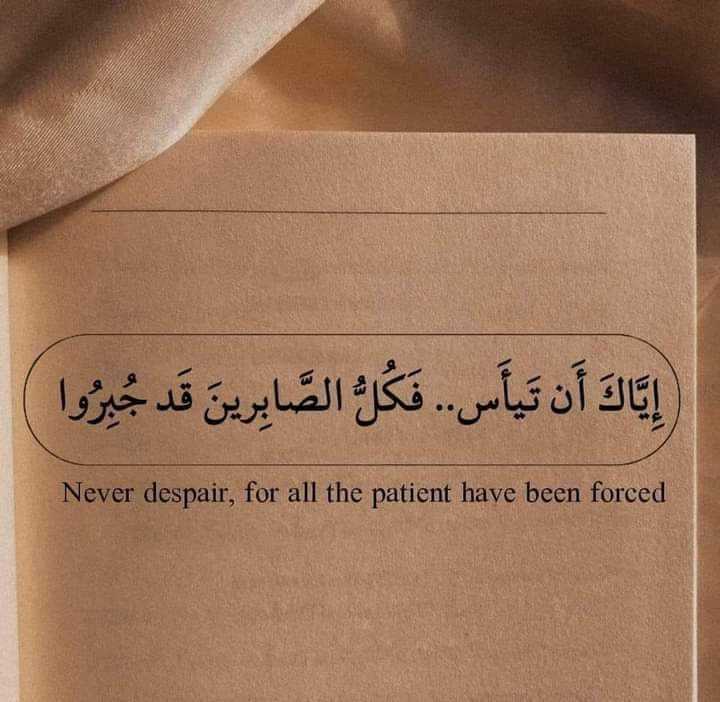 إِيَّاكَ أَن تَيأَس.. فَكُلُّ الصَّابِرينَ قَد جُبِرُوا
Never despair, for all the patient have been forced